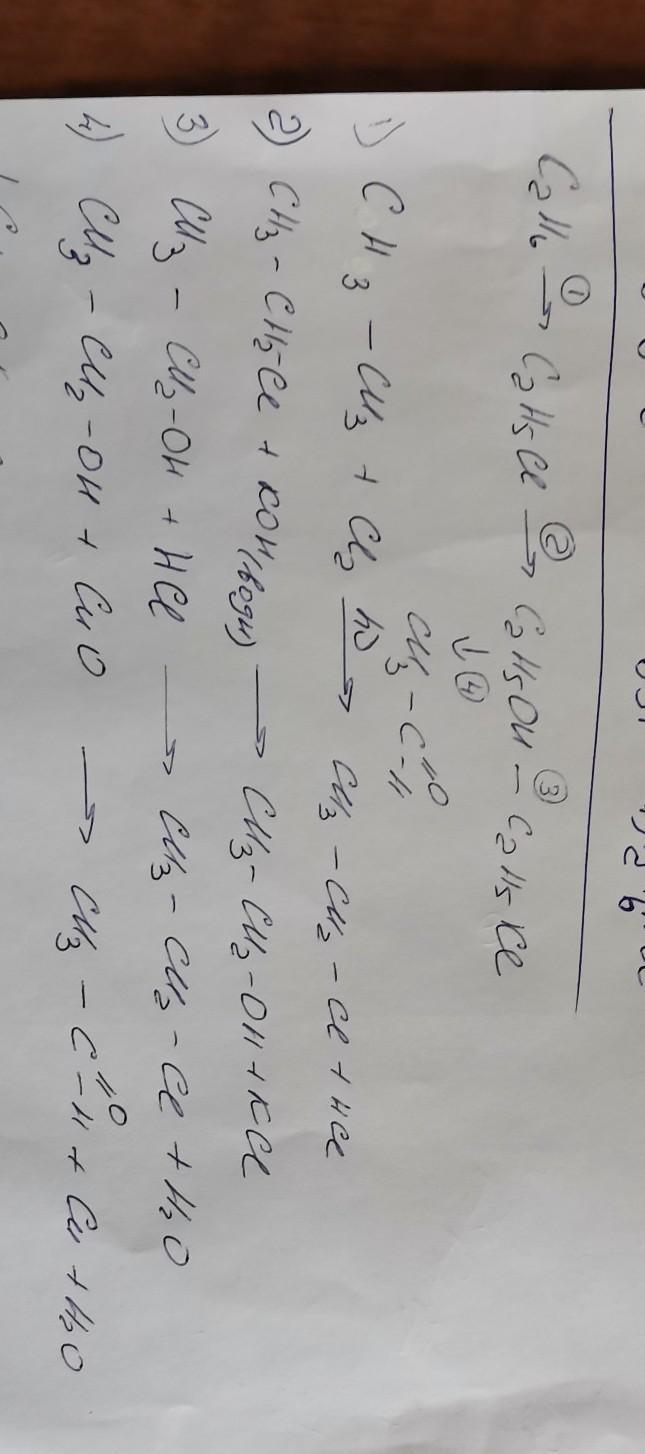 C₂H₆ ①→ C₂H₅Cl ②→ C₂H₅OH ③– C₂H₅Cl
↓④
CH₃–C=O–H
1) CH₃–CH₃ + Cl₂ hν→ CH₃–CH₂–Cl + HCl
2) CH₃–CH₂–Cl + KOH(водн) → CH₃–CH₂–OH + KCl
3) CH₃–CH₂–OH + HCl → CH₃–CH₂–Cl + H₂O
4) CH₃–CH₂–OH + CuO → CH₃–C=O–H + Cu + H₂O